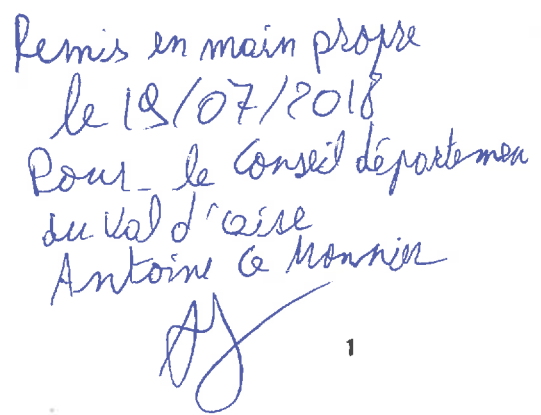 Remis en main propre
le 19/07/2018
Pour le Conseil départemen
du Val d'oise
Antoine Le Monnier
1